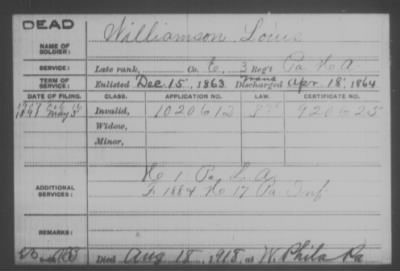 DEAD
NAME OF SOLDIER: Williamson Louis
SERVICE: Late rank, Co. E, 3 Reg't Pa H A
TERM OF SERVICE: Enlisted Dec 15, 1863 Trans Discharged Apr. 18, 1864
DATE OF FILING. CLASS. APPLICATION NO. LAW. CERTIFICATE NO.
1891 May 5 Invalid, 1020612 920625
Widow,
Minor,
ADDITIONAL SERVICES: H 1 Pa L A
F 1884 17 Pa Inf
REMARKS:
Died Aug 18, 1918, at W. Phila Pa